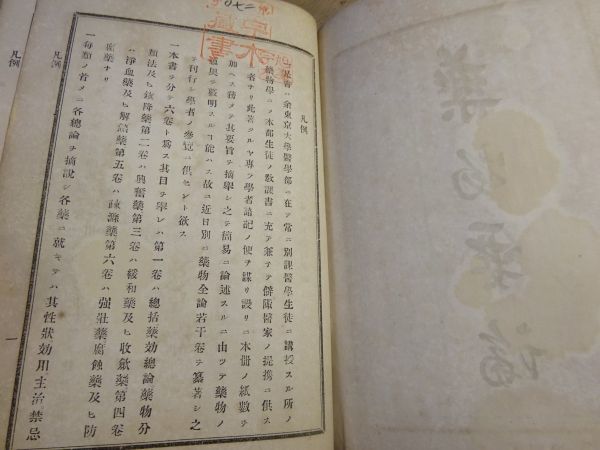 凡例
是書ハ余東京大學醫學部ニ在テ常ニ別課醫學生徒ニ講授スル所ノ
藥物學ニノ本部生徒ノ敎課書ニ充テ兼テ僻陬醫家ノ提携ニ供ス
者ナリ此著タルヤ專ラ學者諳記ノ便ヲ謀リ設リニ本冊ノ紙數ヲ
加ヘス務メテ其要旨ヲ摘擧シ之ヲ簡易ニ論述スルニ由ツテ藥物ノ
蘊奧ヲ鬯明スルヿ能ハス故ニ近日別ニ藥物全論若干卷ヲ纂著シ之
ヲ刊行シ學者ノ參覽ニ供セント欲ス
一本書ヲ分テ六卷ト爲ス其目ヲ擧レハ第一卷ハ總括藥効總論藥物分
類法及ヒ鎮降藥第二卷ハ興奮藥第三卷ハ緩和藥及ヒ收斂藥第四卷
ハ淨血藥及ヒ解凝藥第五卷ハ疎滌藥第六卷ハ强壯藥腐蝕藥及ヒ防
腐藥ナリ
一每類ノ首メニ各總論ヲ摘說シ各藥ニ就キテハ其性狀効用主治禁忌
凡例
一
凡例